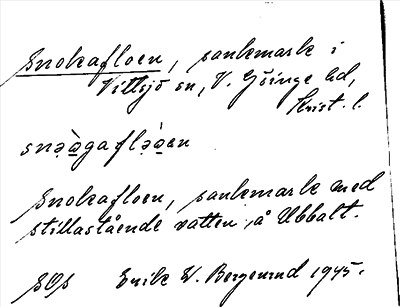 Snokafloen, sankmark i
Vittsjö sn, V. Göinge hd,
Krist. l.
snə̀ə̀gaflə̀ə̀en
Snokafloen, sankmark med
stillastående vatten, å Ubbalt.
SOS Erik W. Bergenrud 1945.